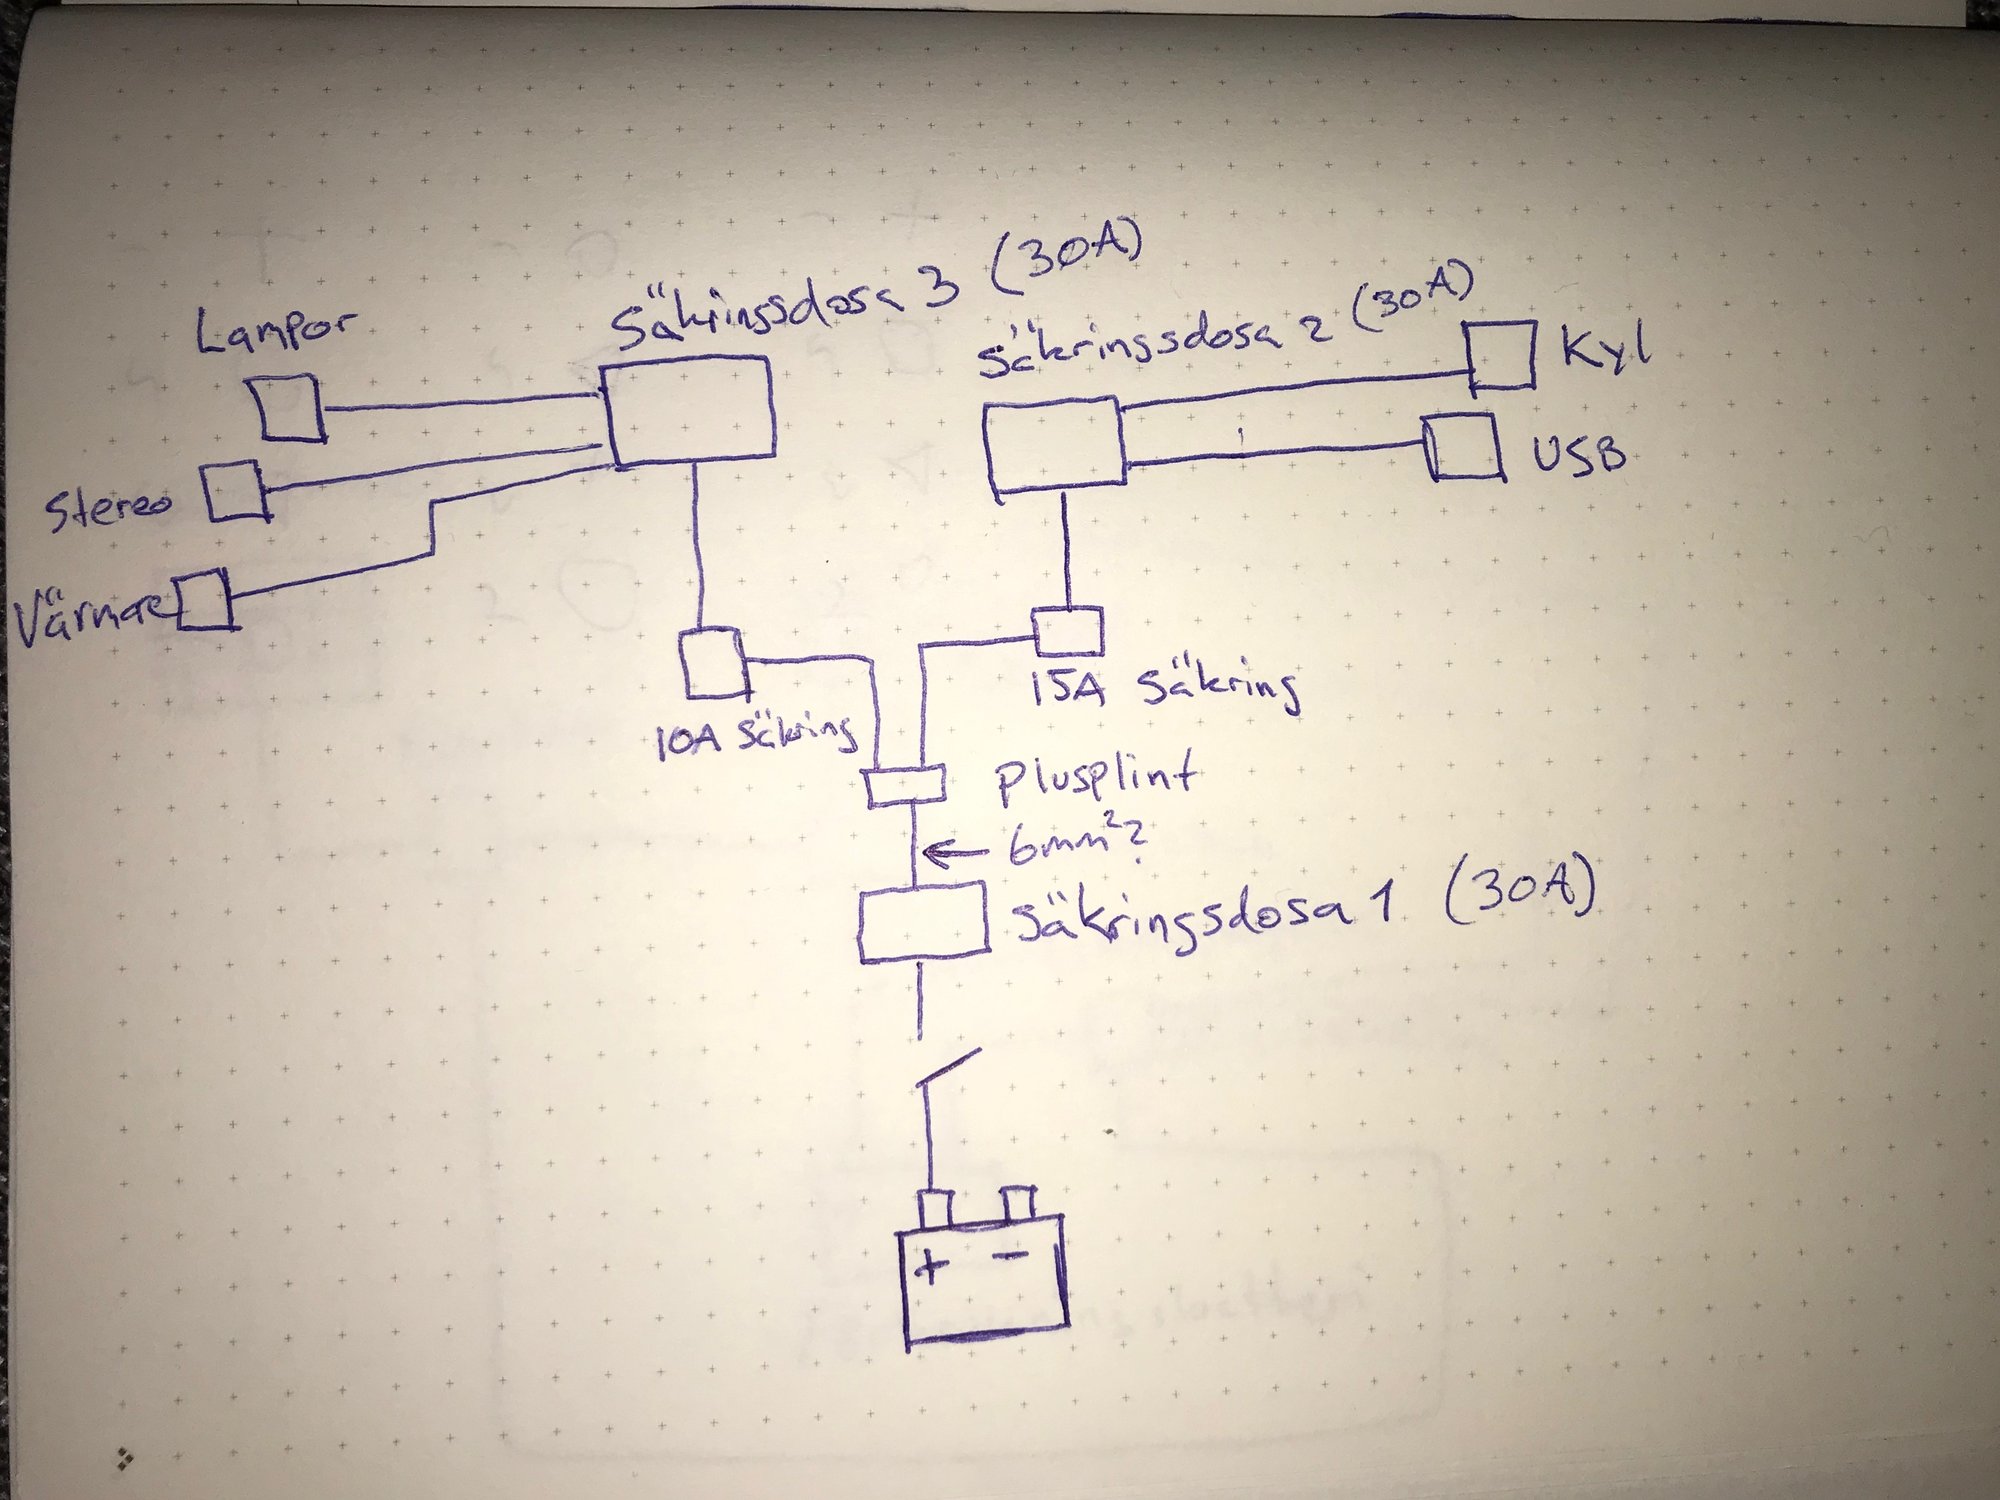 Säkringsdosa 3 (30A)
Säkringsdosa 2 (30A)
Lampor
Kyl
USB
Stereo
Värmare
10A Säkring
15A Säkring
Plusplint
6mm²?
Säkringsdosa 1 (30A)
+ -